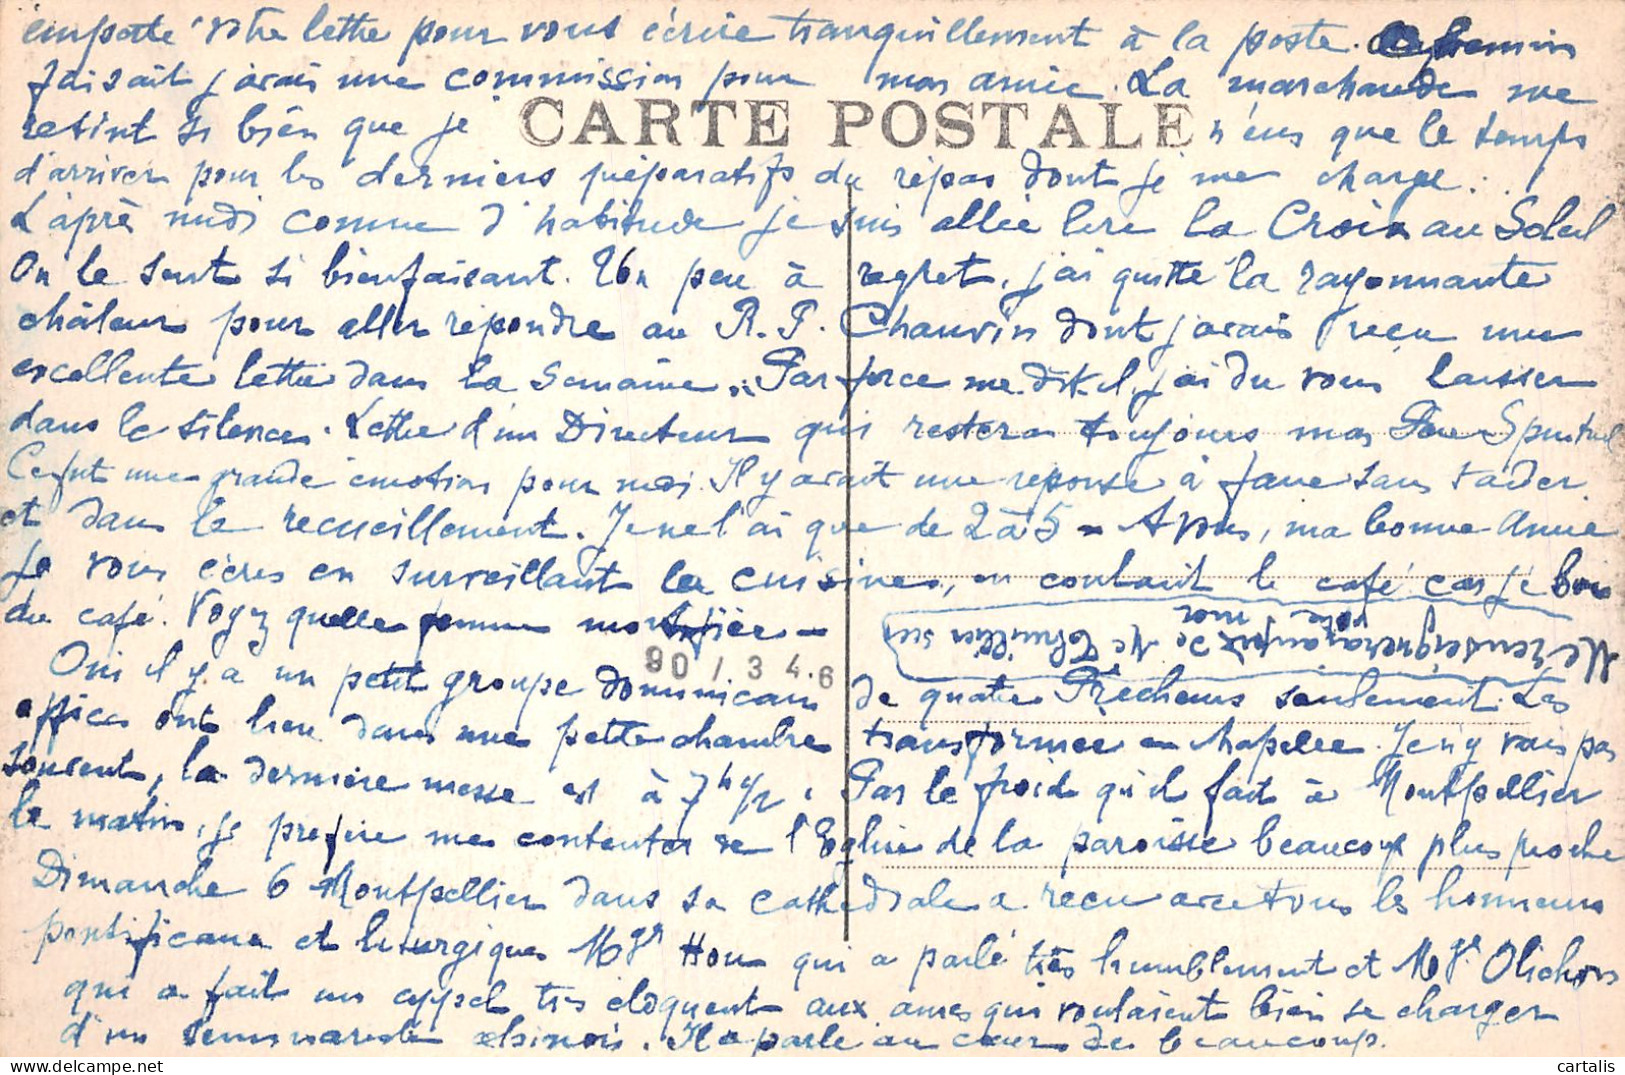 emporté votre lettre pour vous écrire tranquillement à la poste. chemin
faisait j'avais une commission pour mon amie. La marchande me
retint si bien que je n'eus que le temps
CARTE POSTALE
d'arriver pour les derniers préparatifs du repas dont je me charge...
L'après midi comme d'habitude je suis allée lire la Croix au Soleil
On le sent si bienfaisant. Un peu à regret, j'ai quitté la rayonnante
châleur pour aller répondre au R. P. Chauvin dont j'avais reçu une
excellente lettre dans la semaine. "Par force me dit-il, j'ai du vous laisser
dans le silence. Lettre d'un Directeur qui restera toujours mon Père Spirituel
Ce fut une grande émotion pour moi. Il y avait une réponse à faire sans tarder
et dans le recueillement. Je ne l'ai que de 2 à 5 - A vous, ma bonne Amie
Je vous écris en surveillant la cuisine, en coulant le café car je bois
du café. Voyez quelle femme mortifiée -
Me renseignerai auprès de Me Thuillier sur
votre mor
90 / 3 4.6
Oui il y a un petit groupe dominicain de quatre Prêcheurs seulement. Les
offices ont lieu dans une petite chambre transformée en chapelle. Je n'y vais pas
souvent, la dernière messe est à 7h 1/2. Par le froid qu'il fait à Montpellier
le matin, je préfère me contenter de l'Eglise de la paroisse beaucoup plus proche
Dimanche 6 Montpellier dans sa cathédrale a reçu avec tous les honneurs
pontificaux et liturgiques Mgr Hou qui a parlé très humblement et Mgr Olichon
qui a fait un appel très éloquent aux âmes qui voulaient bien se charger
d'un séminariste chinois. Il a parlé au cœur de beaucoup.
cartalis